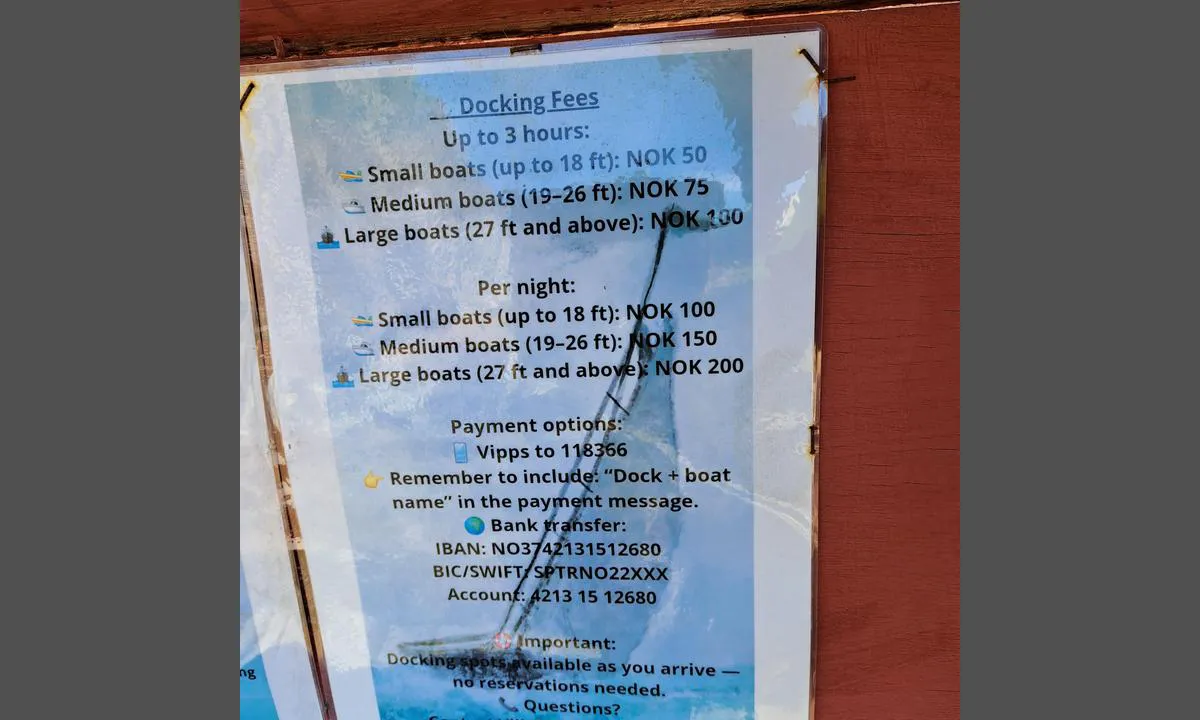 Docking Fees
Up to 3 hours:
🚤 Small boats (up to 18 ft): NOK 50
🛥️ Medium boats (19–26 ft): NOK 75
🚢 Large boats (27 ft and above): NOK 100
Per night:
🚤 Small boats (up to 18 ft): NOK 100
🛥️ Medium boats (19–26 ft): NOK 150
🚢 Large boats (27 ft and above): NOK 200
Payment options:
📱 Vipps to 118366
👉 Remember to include: “Dock + boat
name” in the payment message.
🌍 Bank transfer:
IBAN: NO3742131512680
BIC/SWIFT: SPTRNO22XXX
Account: 4213 15 12680
🛟 Important:
Docking spots available as you arrive —
no reservations needed.
📞 Questions?
ng